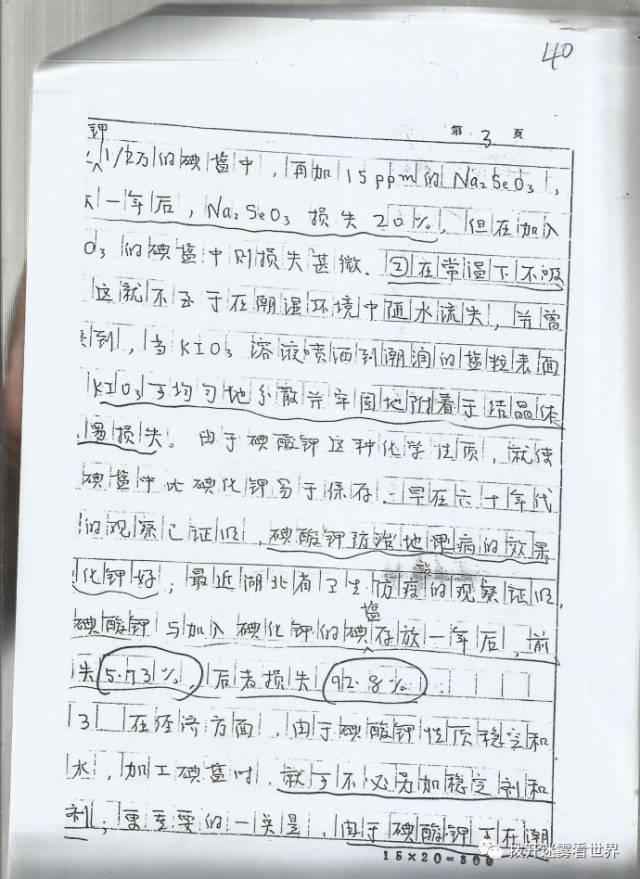 40
第 3 页
钾
1/2万的碘盐中，再加15ppm的Na₂SeO₃，
一年后，Na₂SeO₃损失20%，但在加入
O₃的碘盐中则损失甚微．②在常温下不吸
这就不至于在潮湿环境中随水流失，并曾
到，当KIO₃溶液喷洒到潮润的盐粒表面
KIO₃可均匀地分散并牢固地附着于结晶体
易损失。由于碘酸钾这种化学性质，就使
碘盐中比碘化钾易于保存．早在六十年代
的观察已证明，碘酸钾防治地甲病的效果
化钾好；最近湖北省卫生防疫的观察证明，
碘酸钾与加入碘化钾的碘盐存放一年后，前
失5.73%，后者损失92.8%。
3 在经济方面，由于碘酸钾性质稳定和
水，加工碘盐时，就可不必另加稳定剂和
剂；更重要的一点是，由于碘酸钾可在潮
15×20=300
拨开迷雾看世界